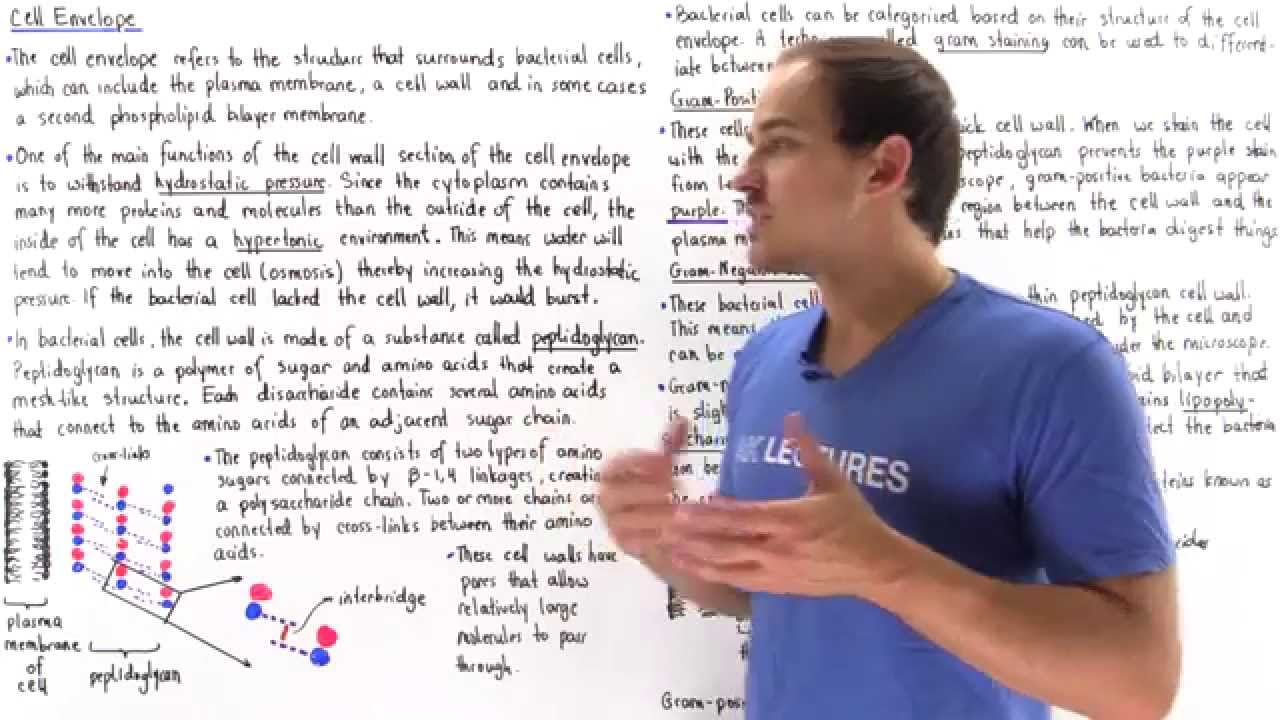 Cell Envelope
•The cell envelope refers to the structure that surrounds bacterial cells,
which can include the plasma membrane, a cell wall and in some cases
a second phospholipid bilayer membrane.
•One of the main functions of the cell wall section of the cell envelope
is to withstand hydrostatic pressure. Since the cytoplasm contains
many more proteins and molecules than the outside of the cell, the
inside of the cell has a hypertonic environment. This means water will
tend to move into the cell (osmosis) thereby increasing the hydrostatic
pressure. If the bacterial cell lacked the cell wall, it would burst.
•In bacterial cells, the cell wall is made of a substance called peptidoglycan.
Peptidoglycan is a polymer of sugar and amino acids that create a
mesh-like structure. Each disaccharide contains several amino acids
that connect to the amino acids of an adjacent sugar chain.
cross-links
•The peptidoglycan consists of two types of amino
sugars connected by β-1,4 linkages, creatin
a polysaccharide chain. Two or more chains ar
connected by cross-links between their amino
acids.
•These cell walls have
pores that allow
relatively large
molecules to pass
through.
interbridge
plasma
membrane
of
cell
peptidoglycan
•Bacterial cells can be categorized based on their structure of the cell
envelope. A called gram staining can be used to different-
iate between
Gram-Posit
•These cells ick cell wall. When we stain the cell
with the peptidoglycan prevents the purple stain
from scope, gram-positive bacteria appear
purple. region between the cell wall and the
plasma that help the bacteria digest things
Gram-Nega
•These bacterial cel thin peptidoglycan cell wall.
This means by the cell and
can be under the microscope.
•Gram-n bilayer that
is sligh lipopoly-
sacchar the bacteria
known as
LECTURES
Gram-posi